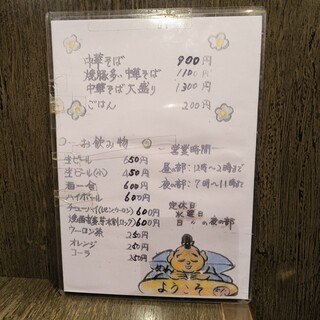 中華そば 900円
焼豚多い中華そば 1100円
中華そば大盛り 1300円
ごはん 200
お飲み物
生ビール 650円
生ビール(小) 450円
酒一合 600円
ハイボール 600円
チューハイ(レモン,ウーロン) 600円
焼酎 600円
ウーロン茶 250円
オレンジ 250円
コーラ 250円
営業時間
昼の部: 12時〜2時まで
夜の部: 7時〜11時まで
定休日
水曜日
夜の部
ようこそ